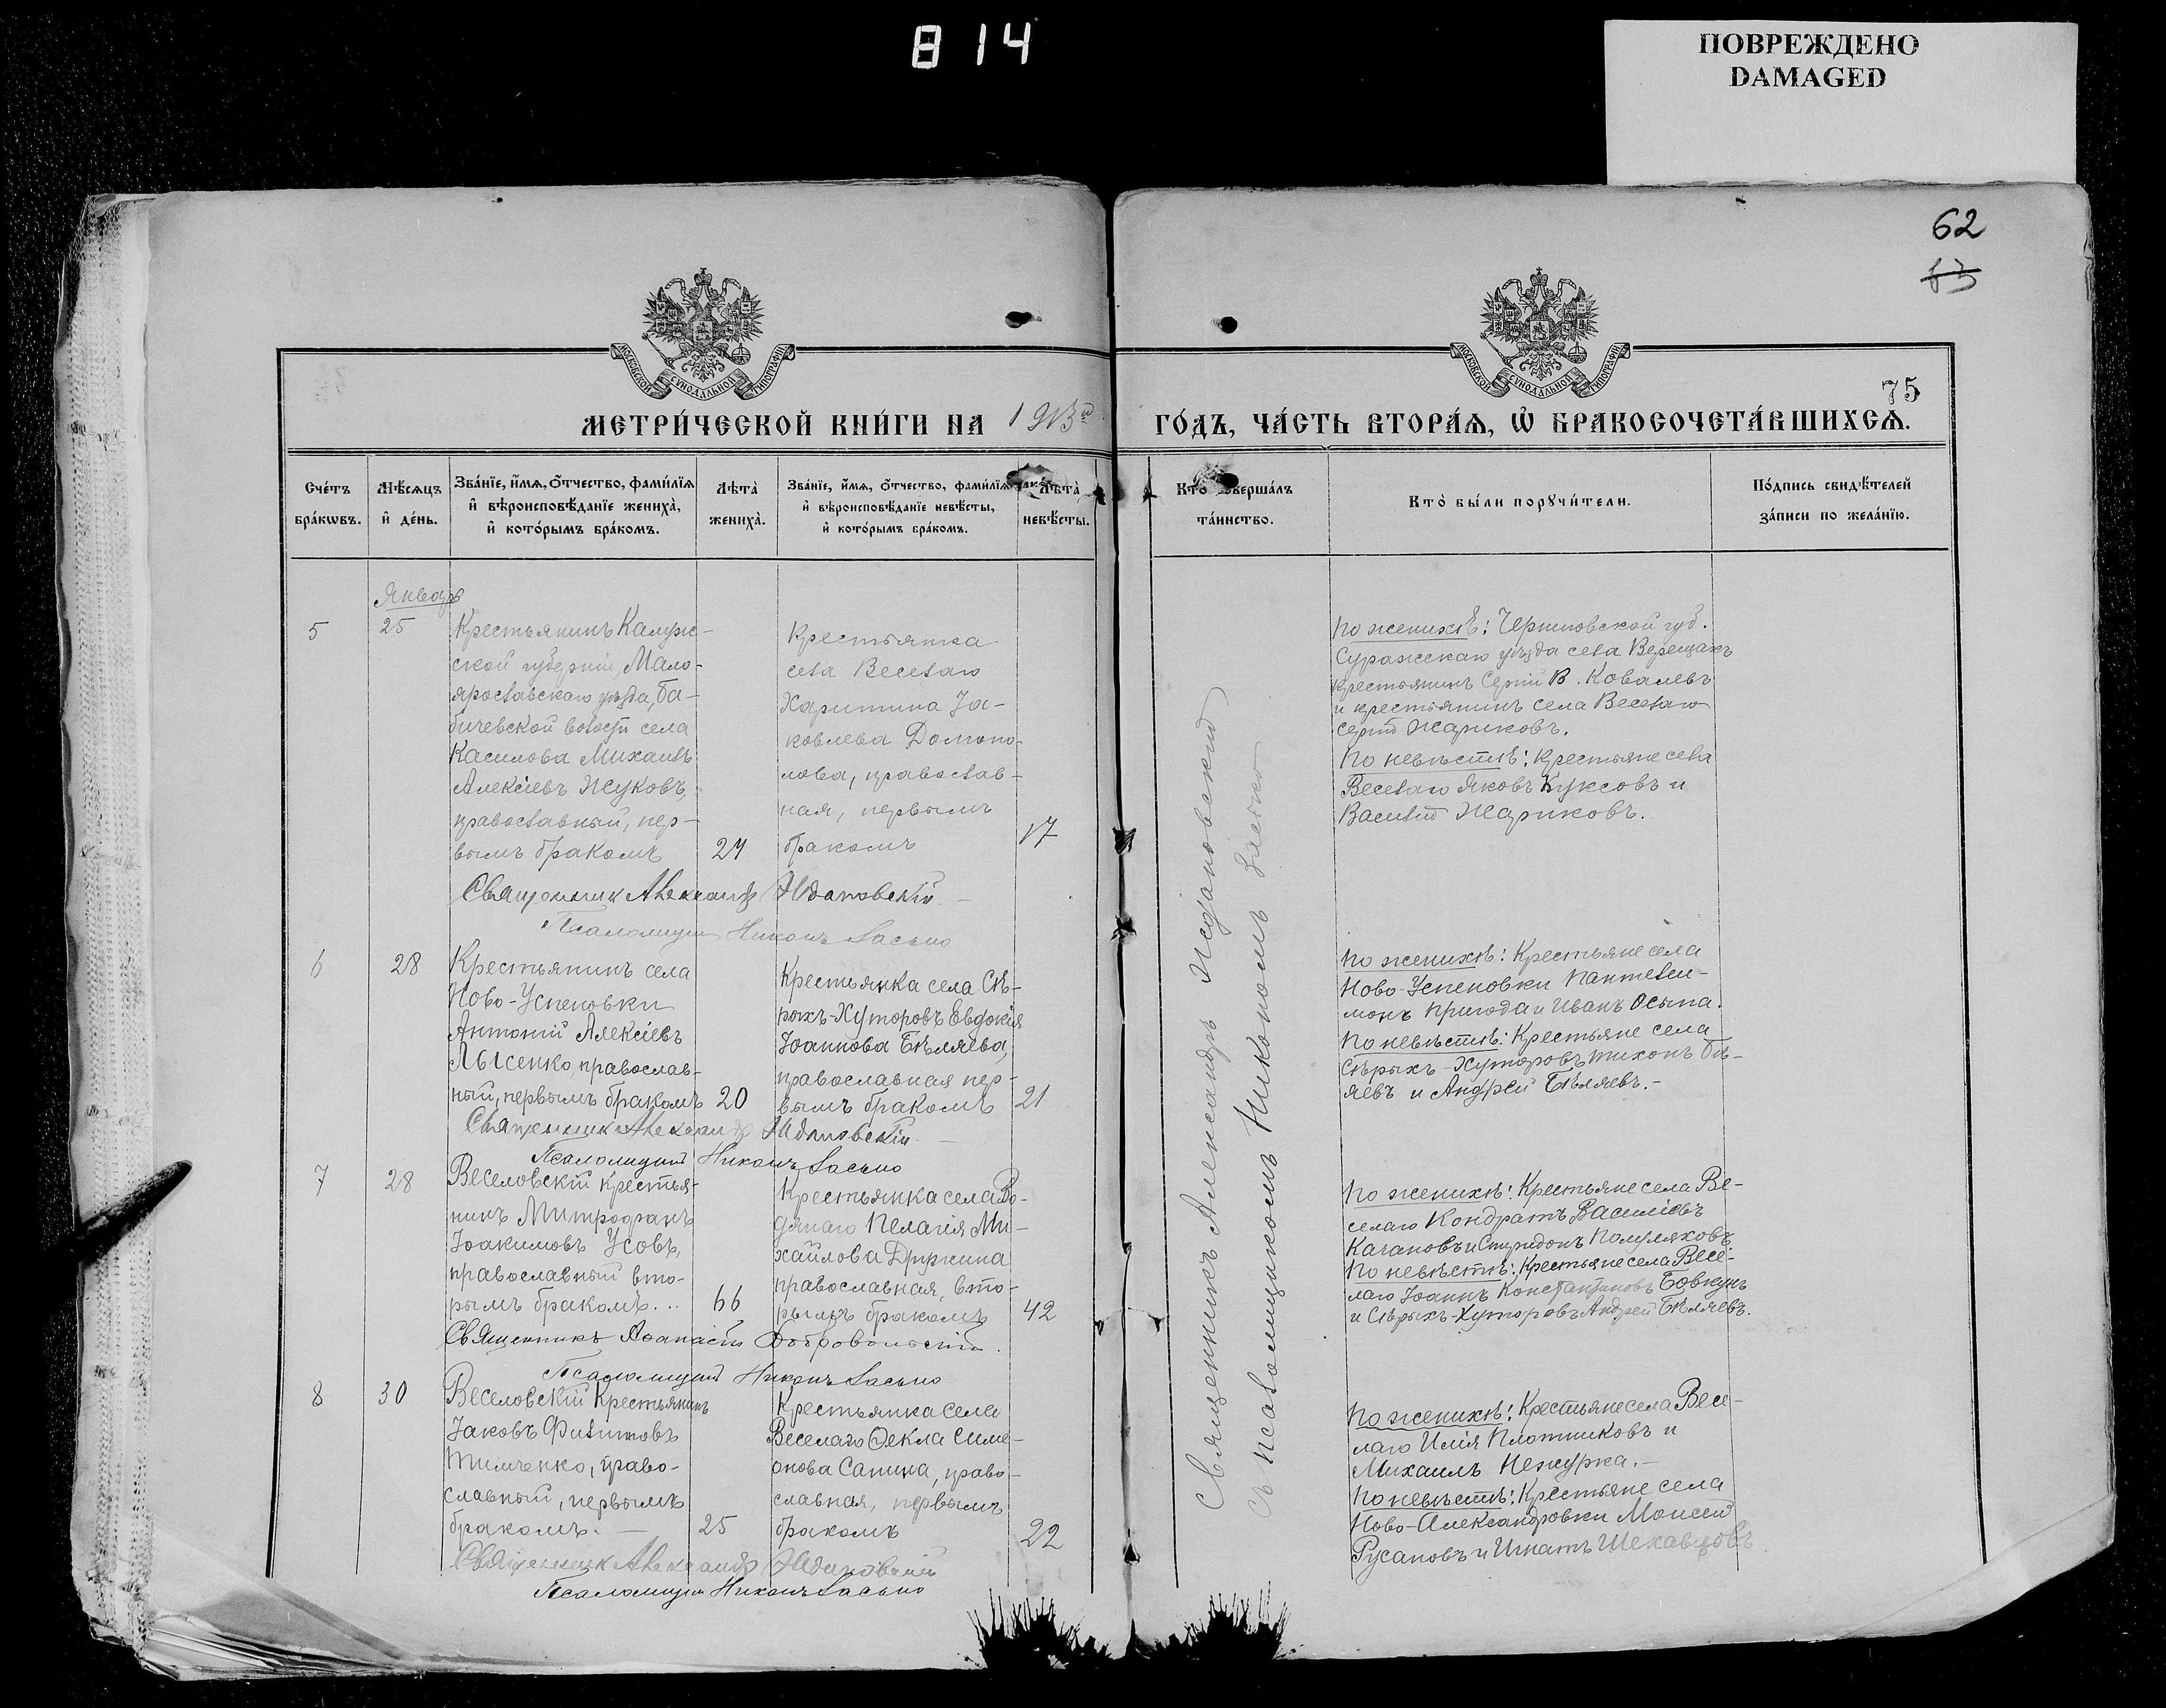 814
ПОВРЕЖДЕНО
DAMAGED
62
75
МОСКОВСКОЙ СѴНОДАЛЬНОЙ ТИПОГРАФІИ
МОСКОВСКОЙ СѴНОДАЛЬНОЙ ТИПОГРАФІИ
МЕТРИ́ЧЕСКОЙ КНИ́ГИ НА 1913й ГО́ДЪ, ЧА́СТЬ ВТОРА́Ѧ, Ѡ҆ БРАКОСОЧЕТА́ВШИХСѦ.
Сче́тъ бра́кѡвъ.
Мѣ́сѧцъ и҆ де́нь.
Зва́нїе, и҆́мѧ, ѻ҆́тчество, фами́лїѧ
и҆ вѣроисповѣ́данїе жениха̀,
и҆ кото́рымъ бра́комъ.
Лѣта̀ жениха̀.
Зва́нїе, и҆́мѧ, ѻ҆́тчество, фами́лїѧ
и҆ вѣроисповѣ́данїе невѣ́сты,
и҆ кото́рымъ бра́комъ.
Лѣта̀ невѣ́сты.
Кто̀ соверша́лъ
та́инство.
Кто̀ бы́ли порꙋчи́тели.
По́дпись свидѣ́телей
за́писи по жела́нїю.
Январь
5
25
Крестьянинъ Калуж-
ской губерніи, Мало-
ярославскаго уѣзда, Ба-
бичевской волости села
Касилова Михаилъ
Алексіевъ Жуковъ,
православный, пер-
вымъ бракомъ
24
Крестьянка
села Веселаго
Харитина Іа-
ковлева Домопо-
лова, православ-
ная, первымъ
бракомъ
17
По женихѣ: Черниговской губ.
Суражскаго уѣзда села Верещакъ
крестьянинъ Сергій В. Ковалевъ
и крестьянинъ села Веселаго
Сергій Жариковъ.
По невѣстѣ: Крестьяне села
Веселаго Яковъ Куксовъ и
Василій Жариковъ.
Священникъ Александръ Ждановскій
Псаломщикъ Никонъ Ласько
6
28
Крестьянинъ села
Ново-Успеновки
Антоній Алексіевъ
Лысенко, православ-
ный, первымъ бракомъ
20
Крестьянка села Сѣ-
рыхъ-Хуторовъ Евдокія
Іоаннова Бѣляева,
православная пер-
вымъ бракомъ
21
По женихѣ: Крестьяне села
Ново-Успеновки Пантелеи-
монъ Пригода и Иванъ Осыпа.
По невѣстѣ: Крестьяне села
Сѣрыхъ-Хуторовъ Тихонъ Бѣ-
яевъ и Андрей Бѣляевъ.-
Священникъ Александръ Ждановскій
Псаломщикъ Никонъ Ласько
7
28
Веселовскій крестья-
нинъ Митрофанъ
Іоакимовъ Усовъ,
православный вто-
рымъ бракомъ...
66
Крестьянка села Во-
дянаго Пелагія Ми-
хайлова Дружина
православная, вто-
рымъ бракомъ
42
По женихѣ: Крестьяне села Ве-
селаго Кондратъ Василіевъ
Качановъ и Спиридонъ Полуляховъ
По невѣстѣ: Крестьяне села Весе-
лаго Іоаннъ Константиновъ Бовкунъ
и Сѣрыхъ-Хуторовъ Андрей Бѣляевъ.
Священникъ Аѳанасій Добровольскій.
Псаломщикъ Никонъ Ласько
8
30
Веселовскій Крестьянинъ
Іаковъ Филипповъ
Тимченко, право-
славный, первымъ
бракомъ.
25
Крестьянка села
Веселаго Ѳекла Симе-
онова Сапина, право-
славная, первымъ
бракомъ
22
По женихѣ: Крестьяне села Весе-
лаго Илія Плотниковъ и
Михаилъ Нежурка.-
По невѣстѣ: Крестьяне села
Ново-Александровки Моисей
Русановъ и Игнатъ Шекавцовъ
Священникъ Александръ Ждановскій
Псаломщикъ Никонъ Ласько
Священникъ Александръ Ждановскій
съ псаломщикомъ Никономъ Ласько